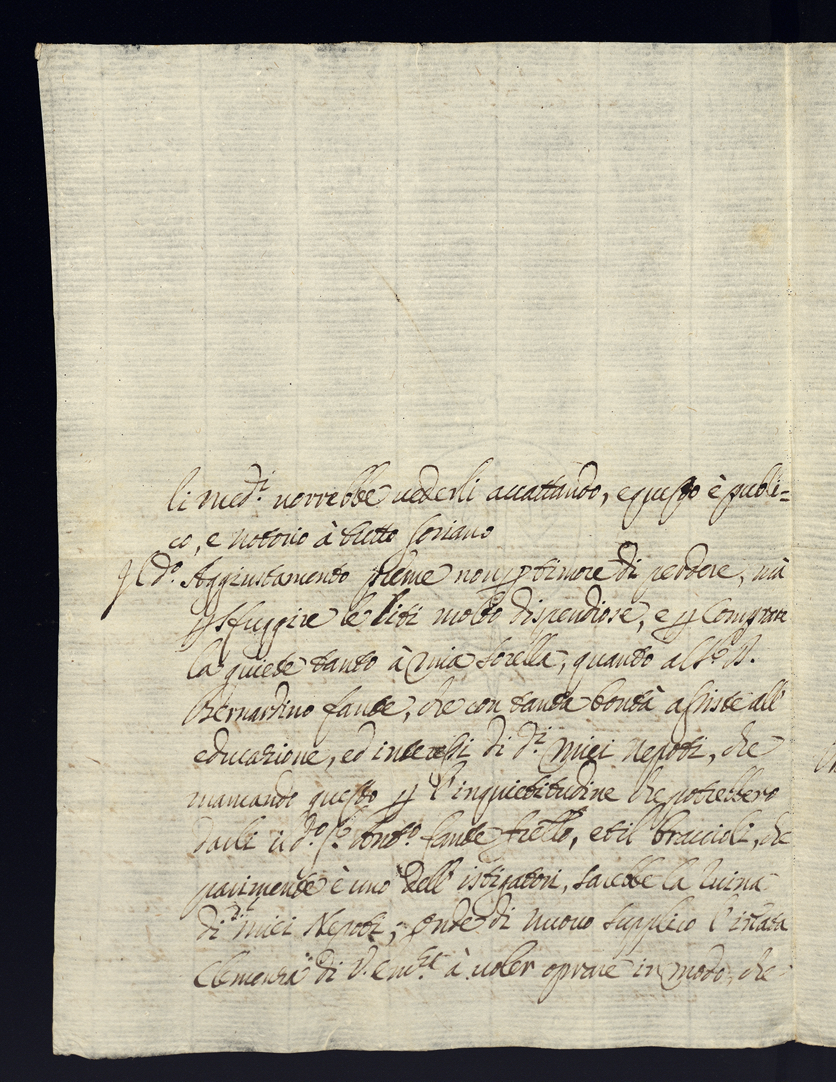 li med.i vorrebbe vederli accattando, e questo è publi=
co, e notorio à tutto Soriano
Il d.o Aggiustamento preme non p timore di perdere, mà
p sfuggire le liti molto dispendiose, e p Comprare
la quiete tanto à mia sorella, quando al S.r D.
Bernardino fante, che con tanta bontà assiste all
educazione, ed interessi di d.i miei nepoti, che
mancando questo p l'inquietitudine che potrebbero
darle il d.o fante frello, et il braccioli, che
parimente è uno dell istigatori, sarebbe la ruina
di d.i miei Nepoti, onde di nuovo supplico l'innata
Clemenza di V. Em.za à voler oprare in modo, che